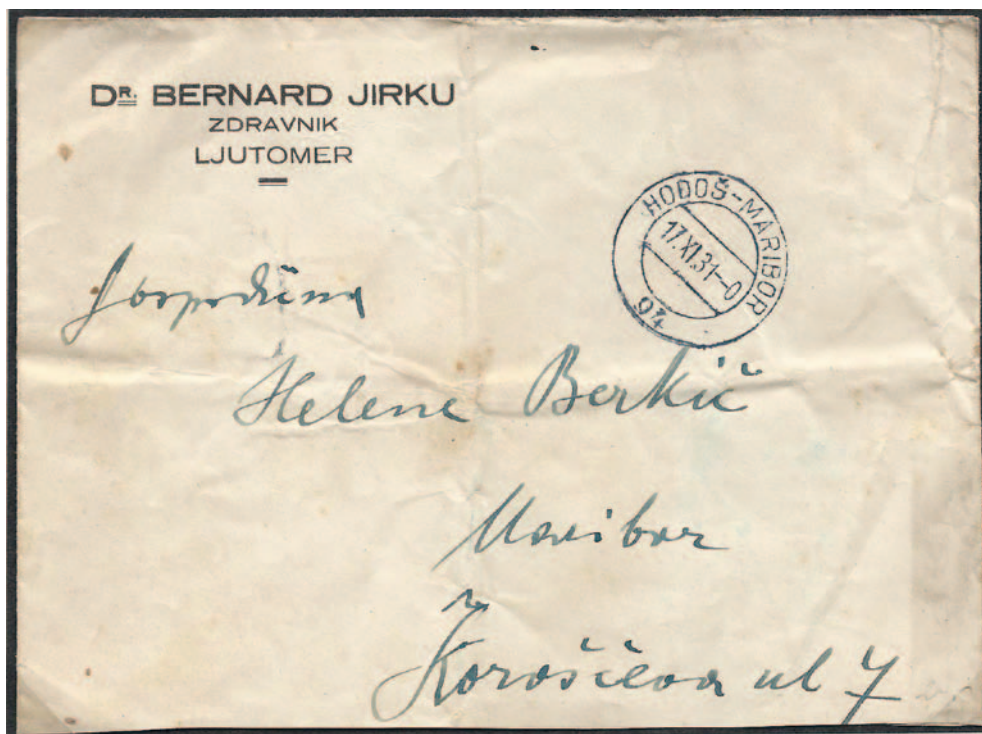 DR. BERNARD JIRKU
ZDRAVNIK
LJUTOMER
HODOŠ-MARIBOR
17.XI.31-0
94
Gospodična
Helene Berkič
Maribor
Koroščeva ul 7